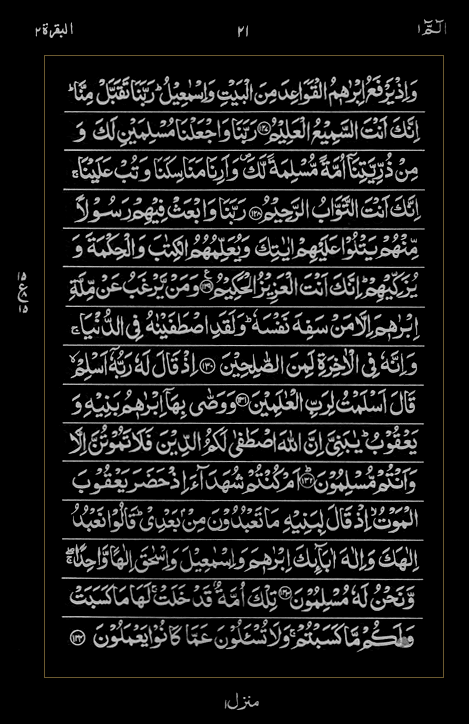 الٓمّٓ ١ ٢١ البقرة ٢
وَاِذْ يَرْفَعُ اِبْرٰهٖمُ الْقَوَاعِدَ مِنَ الْبَيْتِ وَاِسْمٰعِيْلُ ؕ رَبَّنَا تَقَبَّلْ مِنَّا ؕ
اِنَّكَ اَنْتَ السَّمِيْعُ الْعَلِيْمُ ۝١٢٧ رَبَّنَا وَاجْعَلْنَا مُسْلِمَيْنِ لَكَ وَ
مِنْ ذُرِّيَّتِنَاۤ اُمَّةً مُّسْلِمَةً لَّكَ ۪ وَاَرِنَا مَنَاسِكَنَا وَتُبْ عَلَيْنَا ۚ
اِنَّكَ اَنْتَ التَّوَّابُ الرَّحِيْمُ ۝١٢٨ رَبَّنَا وَابْعَثْ فِيْهِمْ رَسُوْلًا
مِّنْهُمْ يَتْلُوْا عَلَيْهِمْ اٰيٰتِكَ وَيُعَلِّمُهُمُ الْكِتٰبَ وَالْحِكْمَةَ وَ
يُزَكِّيْهِمْ ؕ اِنَّكَ اَنْتَ الْعَزِيْزُ الْحَكِيْمُ ۝١٢٩ ع وَمَنْ يَّرْغَبُ عَنْ مِّلَّةِ
١٥ ع ٨ ١٥
اِبْرٰهٖمَ اِلَّا مَنْ سَفِهَ نَفْسَهٗ ؕ وَلَقَدِ اصْطَفَيْنٰهُ فِى الدُّنْيَا ۚ
وَاِنَّهٗ فِى الْاٰخِرَةِ لَمِنَ الصّٰلِحِيْنَ ۝١٣٠ اِذْ قَالَ لَهٗ رَبُّهٗۤ اَسْلِمْ ۙ
قَالَ اَسْلَمْتُ لِرَبِّ الْعٰلَمِيْنَ ۝١٣١ وَوَصّٰى بِهَاۤ اِبْرٰهٖمُ بَنِيْهِ وَ
يَعْقُوْبُ ؕ يٰبَنِىَّ اِنَّ اللّٰهَ اصْطَفٰى لَكُمُ الدِّيْنَ فَلَا تَمُوْتُنَّ اِلَّا
وَاَنْتُمْ مُّسْلِمُوْنَ ۝١٣٢ اَمْ كُنْتُمْ شُهَدَآءَ اِذْ حَضَرَ يَعْقُوْبَ
الْمَوْتُ ۙ اِذْ قَالَ لِبَنِيْهِ مَا تَعْبُدُوْنَ مِنْۢ بَعْدِىْ ؕ قَالُوْا نَعْبُدُ
اِلٰهَكَ وَاِلٰهَ اٰبَآئِكَ اِبْرٰهٖمَ وَاِسْمٰعِيْلَ وَاِسْحٰقَ اِلٰهًا وَّاحِدًا ۚۖ
وَّنَحْنُ لَهٗ مُسْلِمُوْنَ ۝١٣٣ تِلْكَ اُمَّةٌ قَدْ خَلَتْ ۚ لَهَا مَا كَسَبَتْ
وَلَكُمْ مَّا كَسَبْتُمْ ۚ وَلَا تُسْـَٔلُوْنَ عَمَّا كَانُوْا يَعْمَلُوْنَ ۝١٣٤
منزل ١